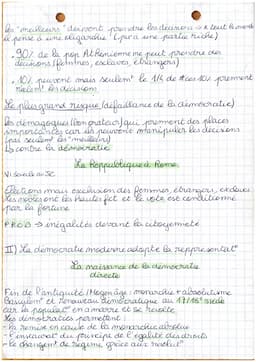 les "meilleurs" devront prendre les décisions → c tout le monde
il pense à une oligarchie (par a une partie riche)
• 90% de la pop Athénienne ne peut prendre des
décisions (femmes, esclaves, étrangers)
• 10% peuvent mais seulemt le 1/3 de ces 10% prennent
réelemt les décisions.
Le plus grand risque (défaillance de la démocratie)
les démagogues qui prennent des places
importantes car ils peuvent manipuler les décisions
(pas seulemt les "meilleurs")
Ls contre la démocratie
La République à Rome
VI s av
Élections mais exclusion des femmes, étrangers, esclaves
les et le vote est conditionné
par la fortune
→ inégalités devant la citoyenneté
II) La démocratie moderne adapte la représentat°
La naissance de la démocratie
directe
Fin de l'antiquité / Moyen âge : monarchie + absolutisme
renouveau démocratique au 17/18e siècle
car la populat° en a marre et se révolte
les démocraties permettent :
• la remise en cause de la monarchie absolue
• l'enracinat du principe de l'égalité des droits
• le changemt de régime grâce aux